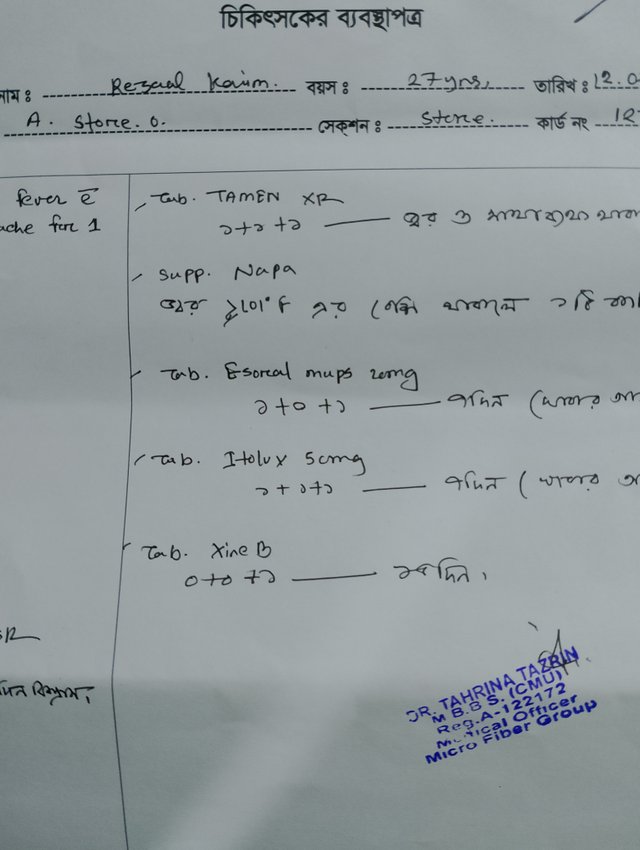 চিকিৎসকের ব্যবস্থাপত্র
নাম ঃ Rezaul Karim. বয়স ঃ 27 yrs, তারিখ ঃ 12.0
A. Store. O. সেকশন ঃ Store. কার্ড নং 12
fever c̄
ache for 1
Tab. TAMEN XR
১+১+১ —— জ্বর ও মাথাব্যথা
Supp. Napa
জ্বর 101°F এর বেশি থাকলে ১টি
Tab. Esoral mups 20mg
১+০+১ —— (খাবার
Tab. Itolux 50mg
১+১+১ —— (খাবার
Tab. Xine B
০+০+১ —— দিন।
দিন বিশ্রাম,
DR. TAHRINA TAZRIN
M.B.B.S, (CMU)
Reg.A-122172
Medical Officer
Micro Fiber Group